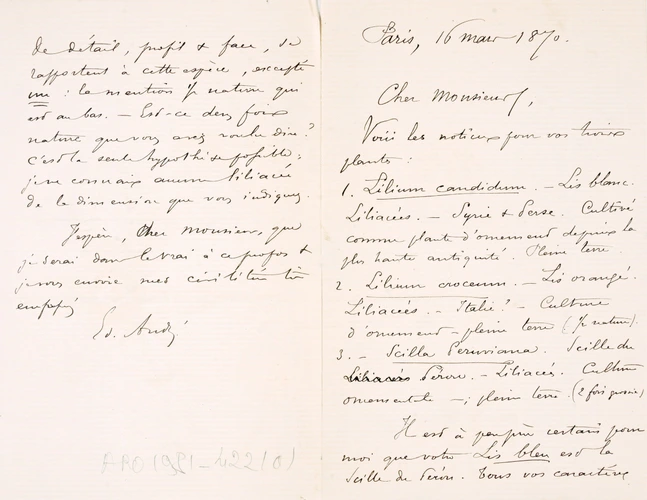 Paris, 16 mars 1870.
Cher Monsieur,
Voici les notices pour vos trois
plantes :
1. Lilium candidum. – Lis blanc.
Liliacées. – Syrie & Perse. Cultivé
comme plante d'ornement depuis la
plus haute antiquité. Pleine terre.
2. Lilium croceum. – Lis orangé.
Liliacées. – Italie? – Culture
d'ornement – pleine terre (½ nature).
3. – Scilla Peruviana. Scille du
Liliacées Pérou. – Liliacées. Culture
ornementale – ; pleine terre. (2 fois grossie)
Il est à peu près certain pour
moi que votre Lis bleu est la
Scille du Pérou. Tous vos caractères
de détail, profil & face, se
rapportent à cette espèce, excepté
un : la mention ½ nature qui
est au bas. – Est-ce deux fois
nature que vous avez voulu dire?
c'est la seule hypothèse possible ;
je ne connais aucune liliacée
de la dimension que vous indiquez.
J'espère, cher Monsieur, que
je serai dans le vrai à ce propos &
je vous envoie mes civilités très
empressées
Ed. André
ARO 1951-422 (0)